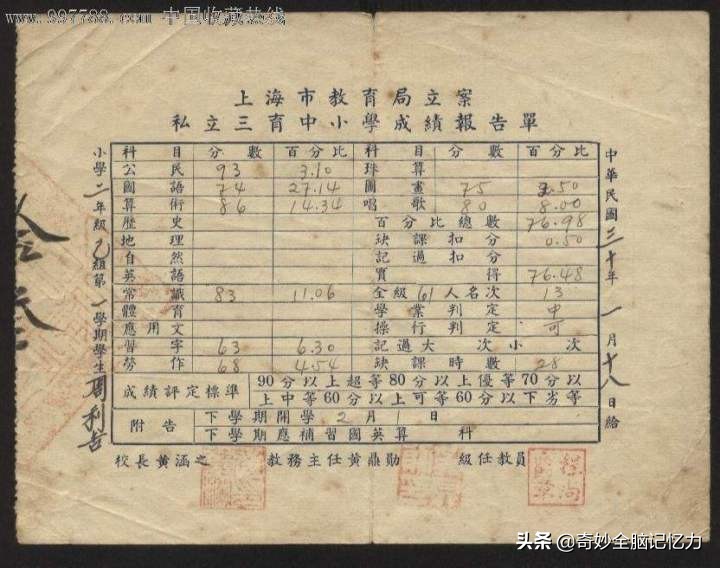 www.997788.com 中国收藏热线
上海市教育局立案
私立三育中小學成績報告單
中華民國三十年一月十八日給
小學二年級乙組第一學期學生周利吉
科目 分數 百分比 科目 分數 百分比
公民 93 3.10 珠算
國語 74 27.14 圖畫 75 3.50
算術 86 14.34 唱歌 80 8.00
歷史 百分比總數 76.98
地理 缺課扣分 0.50
自然 記過扣分
英語 實得 76.48
常識 83 11.06 全級61人名次 13
體育 學業判定 中
應用文 操行判定 可
習字 63 6.30 記過大 次小 次
勞作 68 4.54 缺課時數 28
成績評定標準 90分以上超等80分以上優等70分以
上中等60分以上可等60分以下劣等
附告 下學期開學2月1日
下學期應補習國英算 科
校長黄涵之 教務主任黄鼎勛 級任教員
头条 @奇妙全脑记忆力